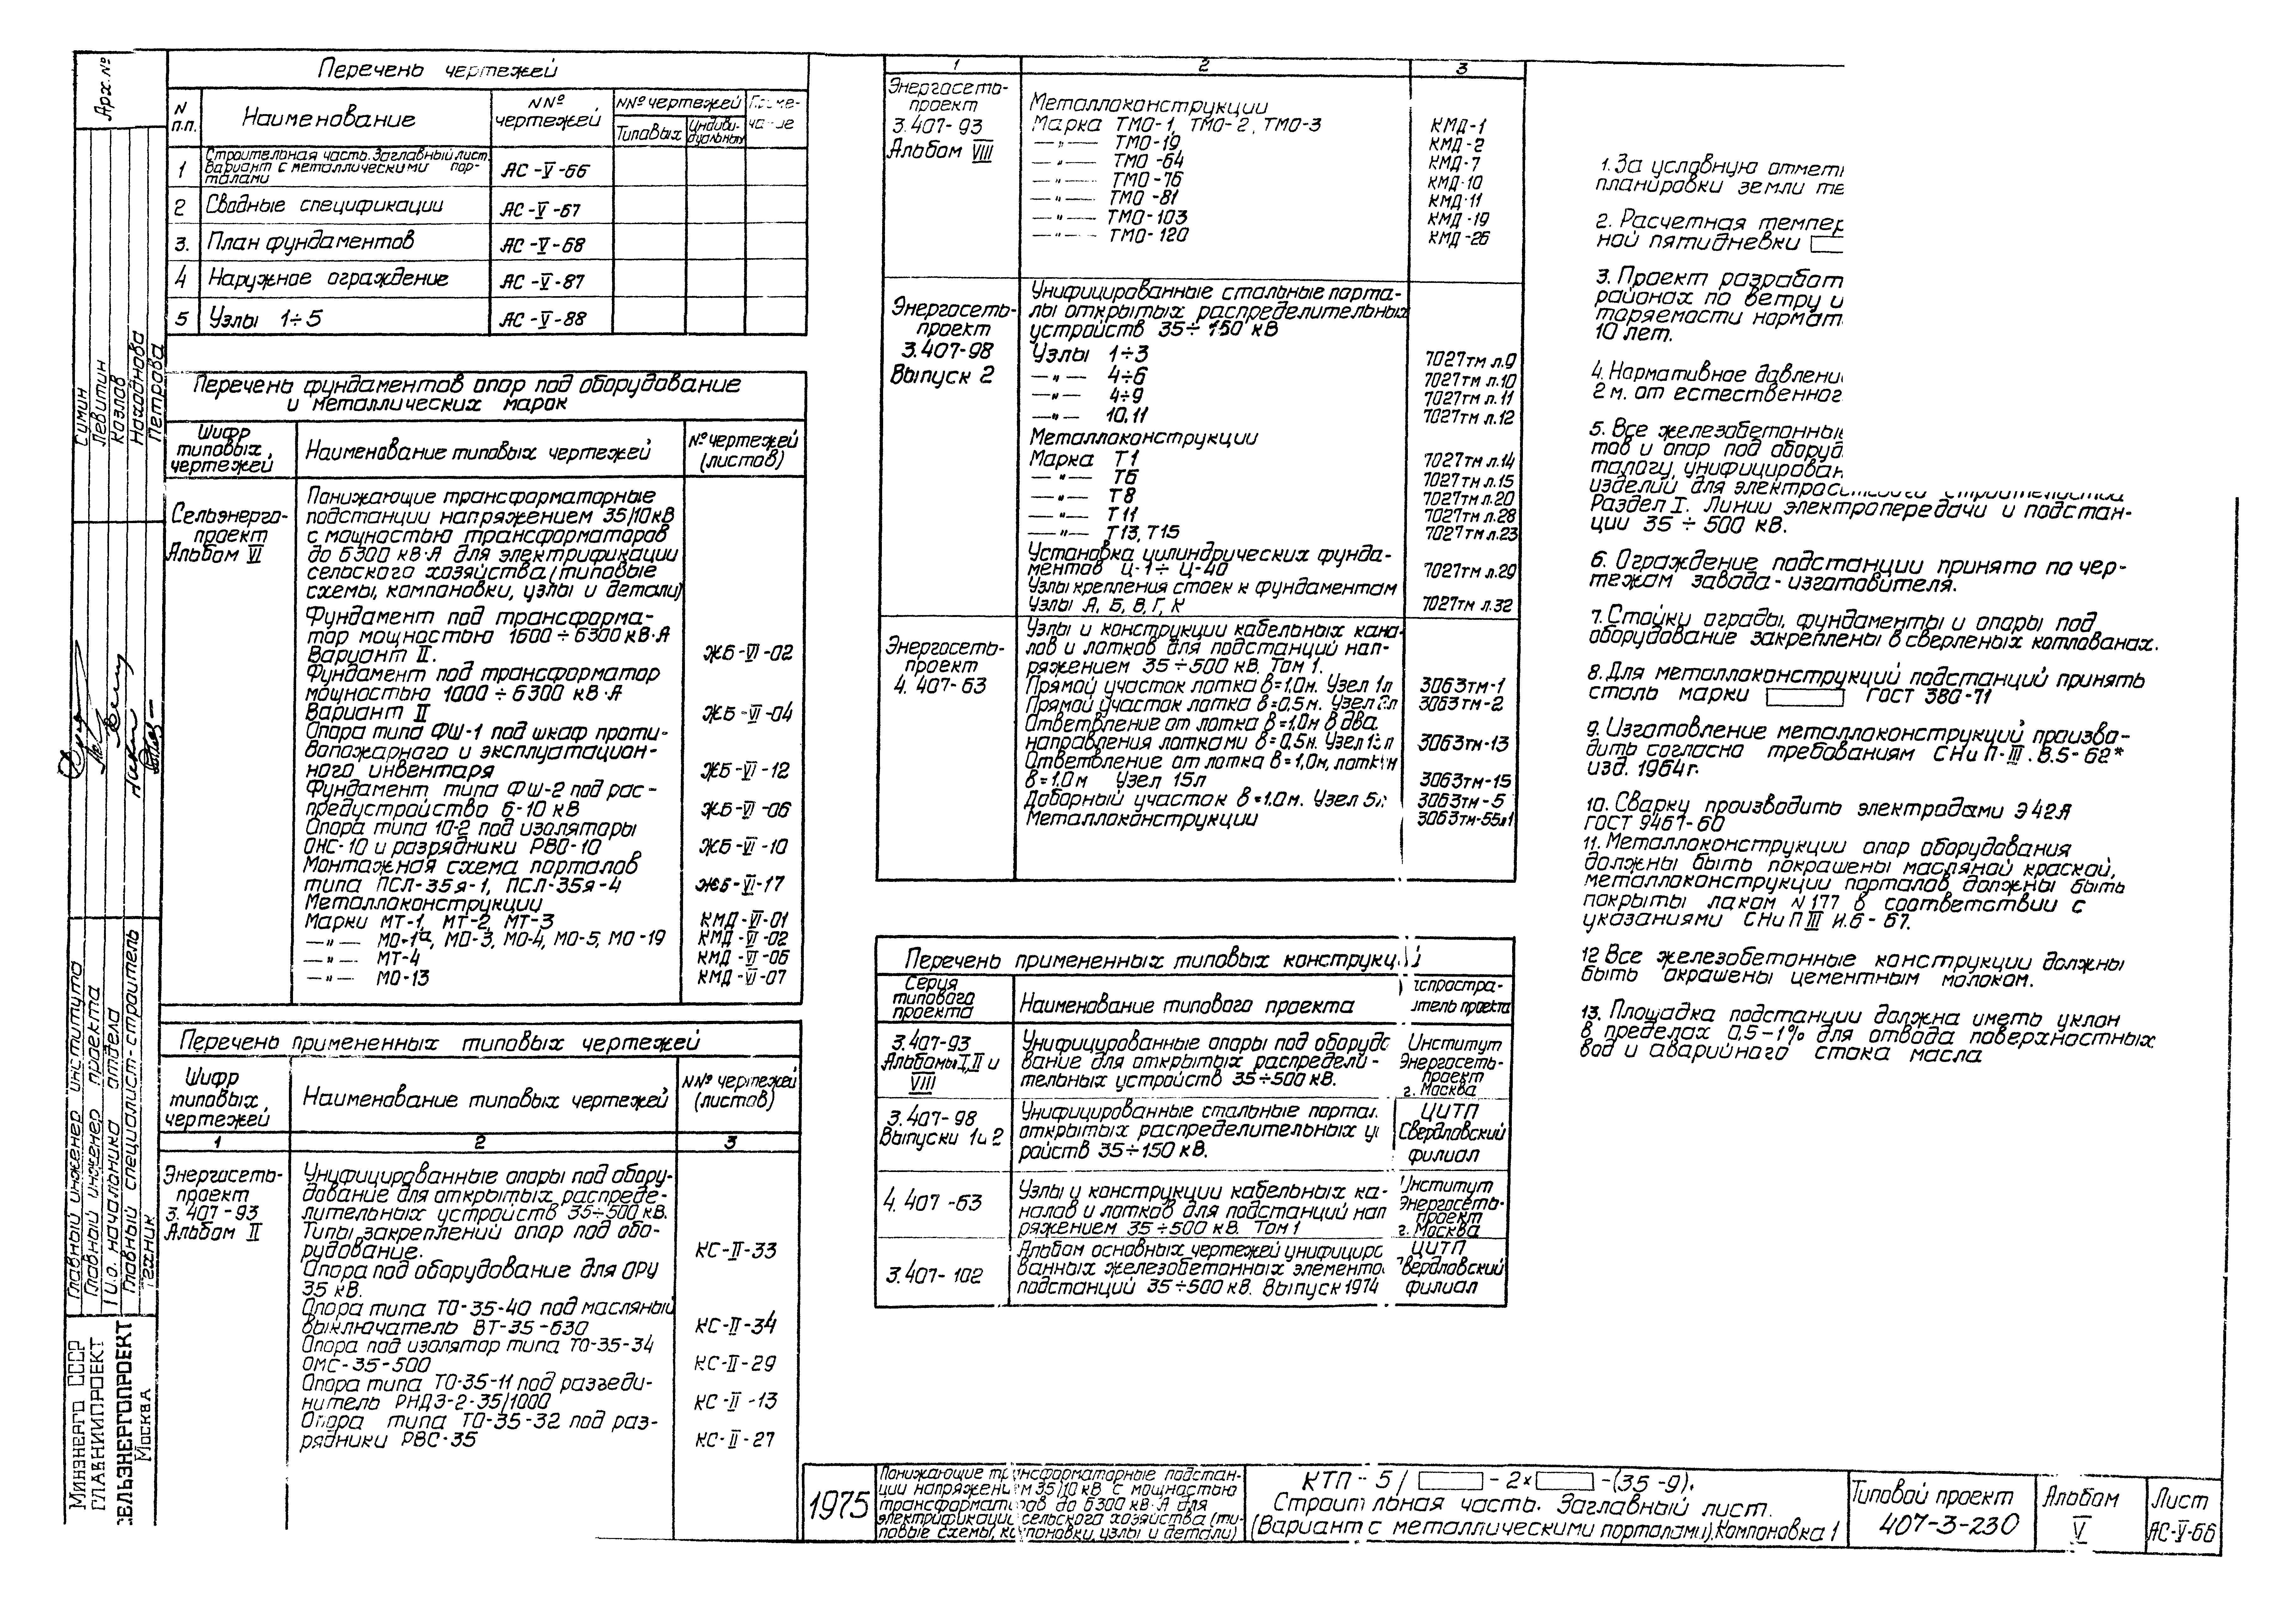 Перечень чертежей
N п.п.
Наименование
NNº чертежей
NNº чертежей
Типовых
Индиви-
дуальных
1
Строительная часть. Заглавный лист.
Вариант с металлическими пор-
талами
АС-V-66
2 Сводные спецификации АС-V-67
3. План фундаментов АС-V-68
4 Наружное ограждение АС-V-87
5 Узлы 1÷5 АС-V-88
Перечень фундаментов опор под оборудование
и металлических марок
Шифр
типовых,
чертежей
Наименование типовых чертежей
Nº чертежей
(листов)
Сельэнерго-
проект
Альбом VI
Понижающие трансформаторные
подстанции напряжением 35/10кВ
с мощностью трансформаторов
до 6300 кВ·А для электрификации
сельского хозяйства (типовые
схемы, компоновки, узлы и детали)
Фундамент под трансформа-
тор мощностью 1600÷6300кВ·А
Вариант II. ЖБ-VI-02
Фундамент под трансформатор
мощностью 1000÷6300 кВ·А
Вариант II ЖБ-VI-04
Опора типа ФШ-1 под шкаф проти-
вопожарного и эксплуатацион-
ного инвентаря ЖБ-VI-12
Фундамент типа ФШ-2 под рас-
предустройство 6-10 кВ ЖБ-VI-06
Опора типа 10-2 под изоляторы
ОНС-10 и разрядники РВО-10 ЖБ-VI-10
Монтажная схема порталов
типа ПСЛ-35я-1, ПСЛ-35я-4 ЖБ-VI-17
Металлоконструкции
Марки МТ-1, МТ-2, МТ-3 КМД-VI-01
—"— МО-1а, МО-3, МО-4, МО-5, МО-19 КМД-VI-02
—"— МТ-4 КМД-VI-06
—"— МО-13 КМД-VI-07
Перечень примененных типовых чертежей
Шифр
типовых,
чертежей
Наименование типовых чертежей
NNº чертежей
(листов)
1 2 3
Энергосеть-
проект
3.407-93
Альбом II
Унифицированные опоры под обору-
дование для открытых распреде-
лительных устройств 35÷500 кВ.
Типы закреплений опор под обо-
рудование. КС-II-33
Опора под оборудование для ОРУ
35 кВ.
Опора типа ТО-35-40 под масляный
выключатель ВТ-35-630 КС-II-34
Опора под изолятор типа ТО-35-34
ОМС-35-500 КС-II-29
Опора типа ТО-35-11 под разъеди-
нитель РНДЗ-2-35/1000 КС-II-13
Опора типа ТО-35-32 под раз-
рядники РВС-35 КС-II-27
1 2 3
Энергосеть-
проект
3.407-93
Альбом VIII
Металлоконструкции
Марка ТМО-1, ТМО-2, ТМО-3 КМД-1
—"— ТМО-19 КМД-2
—"— ТМО-64 КМД-7
—"— ТМО-76 КМД-10
—"— ТМО-81 КМД-11
—"— ТМО-103 КМД-19
—"— ТМО-120 КМД-26
Энергосеть-
проект
3.407-98
Выпуск 2
Унифицированные стальные порта-
лы открытых распределительных
устройств 35÷150 кВ
Узлы 1÷3 7027тм л.9
—"— 4÷6 7027тм л.10
—"— 4÷9 7027тм л.11
—"— 10.11 7027тм л.12
Металлоконструкции
Марка Т1 7027тм л.14
—"— Т6 7027тм л.15
—"— Т8 7027тм л.20
—"— Т11 7027тм л.28
—"— Т13, Т15 7027тм л.23
Установка цилиндрических фунда-
ментов Ц-1÷Ц-40 7027тм л.29
Узлы крепления стоек к фундаментам
Узлы А, Б, В, Г, К 7027тм л.32
Энергосеть-
проект
4.407-63
Узлы и конструкции кабельных кана-
лов и лотков для подстанций нап-
ряжением 35÷500 кВ. Том 1.
Прямой участок лотка в=1.0м. Узел 1л 3063тм-1
Прямой участок лотка в=0,5м. Узел 2л 3063тм-2
Ответвление от лотка в=1,0м в два
направления лотками в=0,5м. Узел 13л 3063тм-13
Ответвление от лотка в=1,0м, лотком
в=1.0м Узел 15л 3063тм-15
Доборный участок в=1.0м. Узел 5л 3063тм-5
Металлоконструкции 3063тм-55л1
Перечень примененных типовых конструкций
Серия
типового
проекта
Наименование типового проекта
спростра-
итель проекта
3.407-93
Альбомы I, II и
VIII
Унифицированные опоры под оборудо
вание для открытых распредели-
тельных устройств 35÷500 кВ.
Институт
Энергосеть-
проект
г. Москва
3.407-98
Выпуски 1и2
Унифицированные стальные портал.
открытых распределительных у
ройств 35÷150 кВ.
ЦИТП
Свердловский
филиал
4.407-63
Узлы и конструкции кабельных ка-
налов и лотков для подстанций нап
ряжением 35÷500 кВ. Том 1
Институт
Энергосеть-
проект
г. Москва
3.407-102
Альбом основных чертежей унифициро
ванных железобетонных элементо
подстанций 35÷500 кВ. Выпуск 1974
ЦИТП
вердловский
филиал
1. За условную отмет
планировки земли те
2. Расчетная темпер
ной пятидневки
3. Проект разработ
районах по ветру и
торяемости нормат
10 лет.
4. Нормативное давлени
2 м. от естественног
5. Все железобетонные
тов и опор под оборуд
талогу, унифицирован
изделий для электросетевого строительства
Раздел I. Линии электропередачи и подстан-
ции 35÷500 кВ.
6. Ограждение подстанции принято по чер-
тежам завода-изготовителя.
7. Стойки ограды, фундаменты и опоры под
оборудование закреплены в сверленых котлованах.
8. Для металлоконструкций подстанций принять
сталь марки ГОСТ 380-71
9. Изготовление металлоконструкций произво-
дить согласно требованиям СНиП-III.В.5-62*
изд. 1964г.
10. Сварку производить электродами Э42А
ГОСТ 9467-60
11. Металлоконструкции опор оборудования
должны быть покрашены масляной краской,
металлоконструкции порталов должны быть
покрыты лаком N177 в соответствии с
указаниями СНиП III И.6-67.
12 Все железобетонные конструкции должны
быть окрашены цементным молоком.
13. Площадка подстанции должна иметь уклон
в пределах 0,5-1% для отвода поверхностных
вод и аварийного стока масла
Арх. Nº
Сумин
Левитин
Козлов
Находнова
Петрова
Главный инженер института
Главный инженер проекта
И.о. начальника отдела
Главный специалист-строитель
Техник
Минэнерго СССР
ГЛАВНИИПРОЕКТ
СЕЛЬЭНЕРГОПРОЕКТ
Москва
1975
Понижающие трансформаторные подстан-
ции напряжением 35/10 кВ с мощностью
трансформаторов до 6300 кВ·А для
электрификации сельского хозяйства (ти-
повые схемы, компоновки, узлы и детали)
КТП-5/ -2× -(35-9).
Строительная часть. Заглавный лист.
(Вариант с металлическими порталами). Компоновка 1
Типовой проект
407-3-230
Альбом
V
Лист
АС-V-66